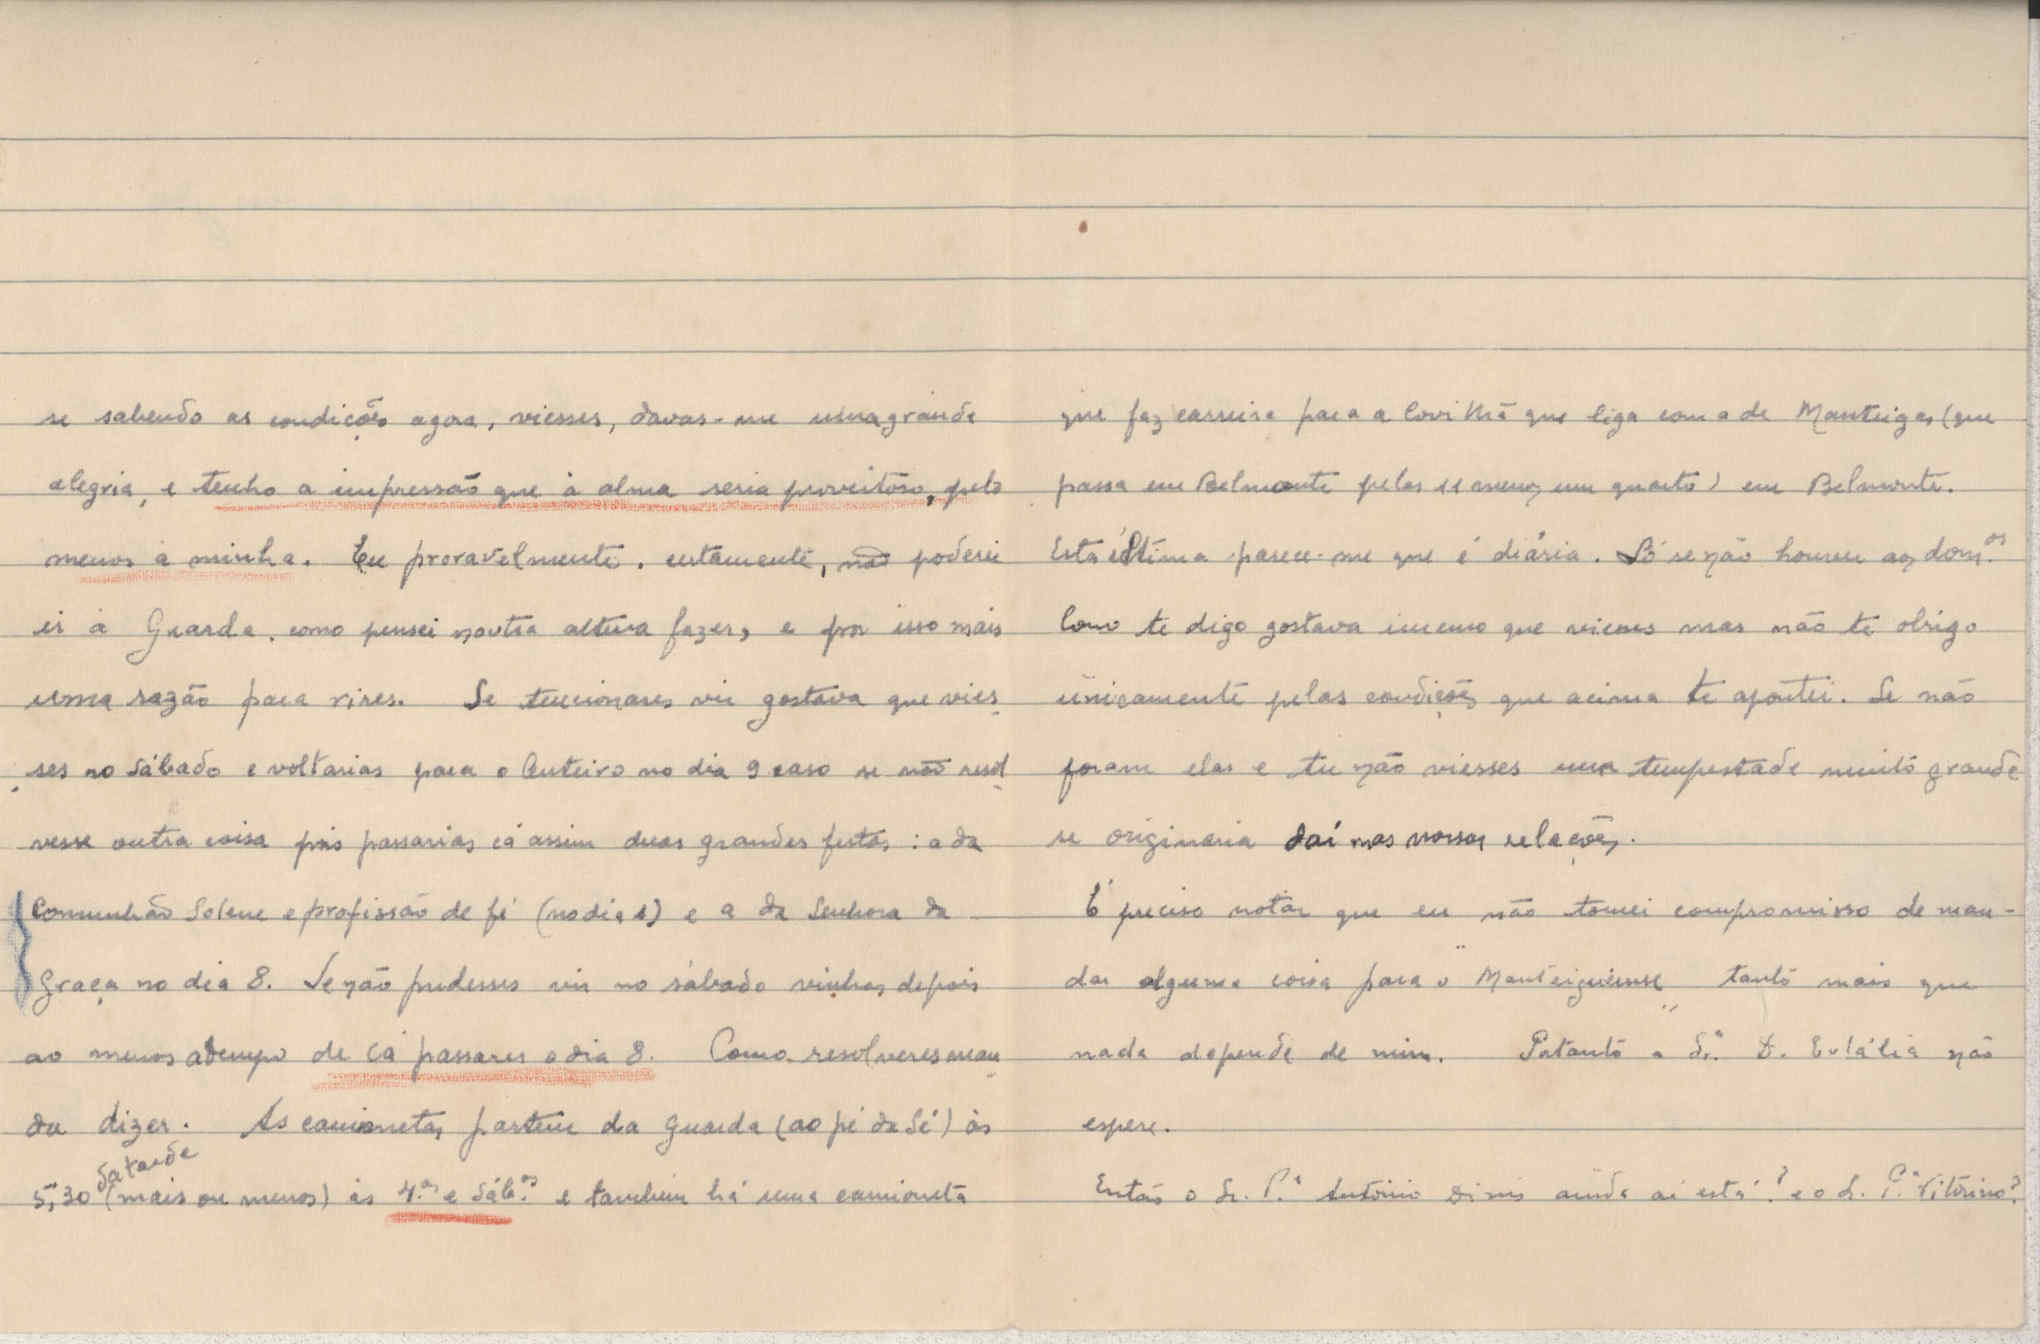 se sabendo as condições agora, viesses, davas-me uma grande
alegria, e tenho a impressão que à alma seria proveitoso, pelo
menos à minha. Eu provavelmente, certamente, não poderei
ir à Guarda, como pensei noutra altura fazer, e por isso mais
uma razão para vires. Se tencionares vir gostava que vies-
ses no sábado e voltarias para o Outeiro no dia 9 caso se não resol-
vesse outra coisa pois passarias cá assim duas grandes festas: a da
Comunhão Solene e profissão de fé (no dia 4) e a da Senhora da
Graça no dia 8. Se não pudesses vir no sábado vinhas depois
ao menos a tempo de cá passares o dia 8. Como resolveres man-
da dizer. As camionetas partem da Guarda (ao pé da Sé) às
5,30 da tarde (mais ou menos) às 4.as e sáb.os e também há uma camioneta
que faz carreira para a Covilhã que liga com a de Manteigas (que
passa em Belmonte pelas 11 menos um quarto) em Belmonte.
Esta última parece-me que é diária. Só se não houver aos dom.os
Como te digo gostava imenso que viesses mas não te obrigo
ùnicamente pelas condições que acima te apontei. Se não
foram elas e tu não viesses uma tempestade muito grande
se originaria daí nas nossas relações.
É preciso notar que eu não tomei compromisso de man-
dar alguma coisa para o "Manteiguense" tanto mais que
nada depende de mim. Portanto a Sr.a D. Eulália não
espere.
Então o Sr. P.e António Dinis ainda aí está? e o Sr. P.e Vitorino?